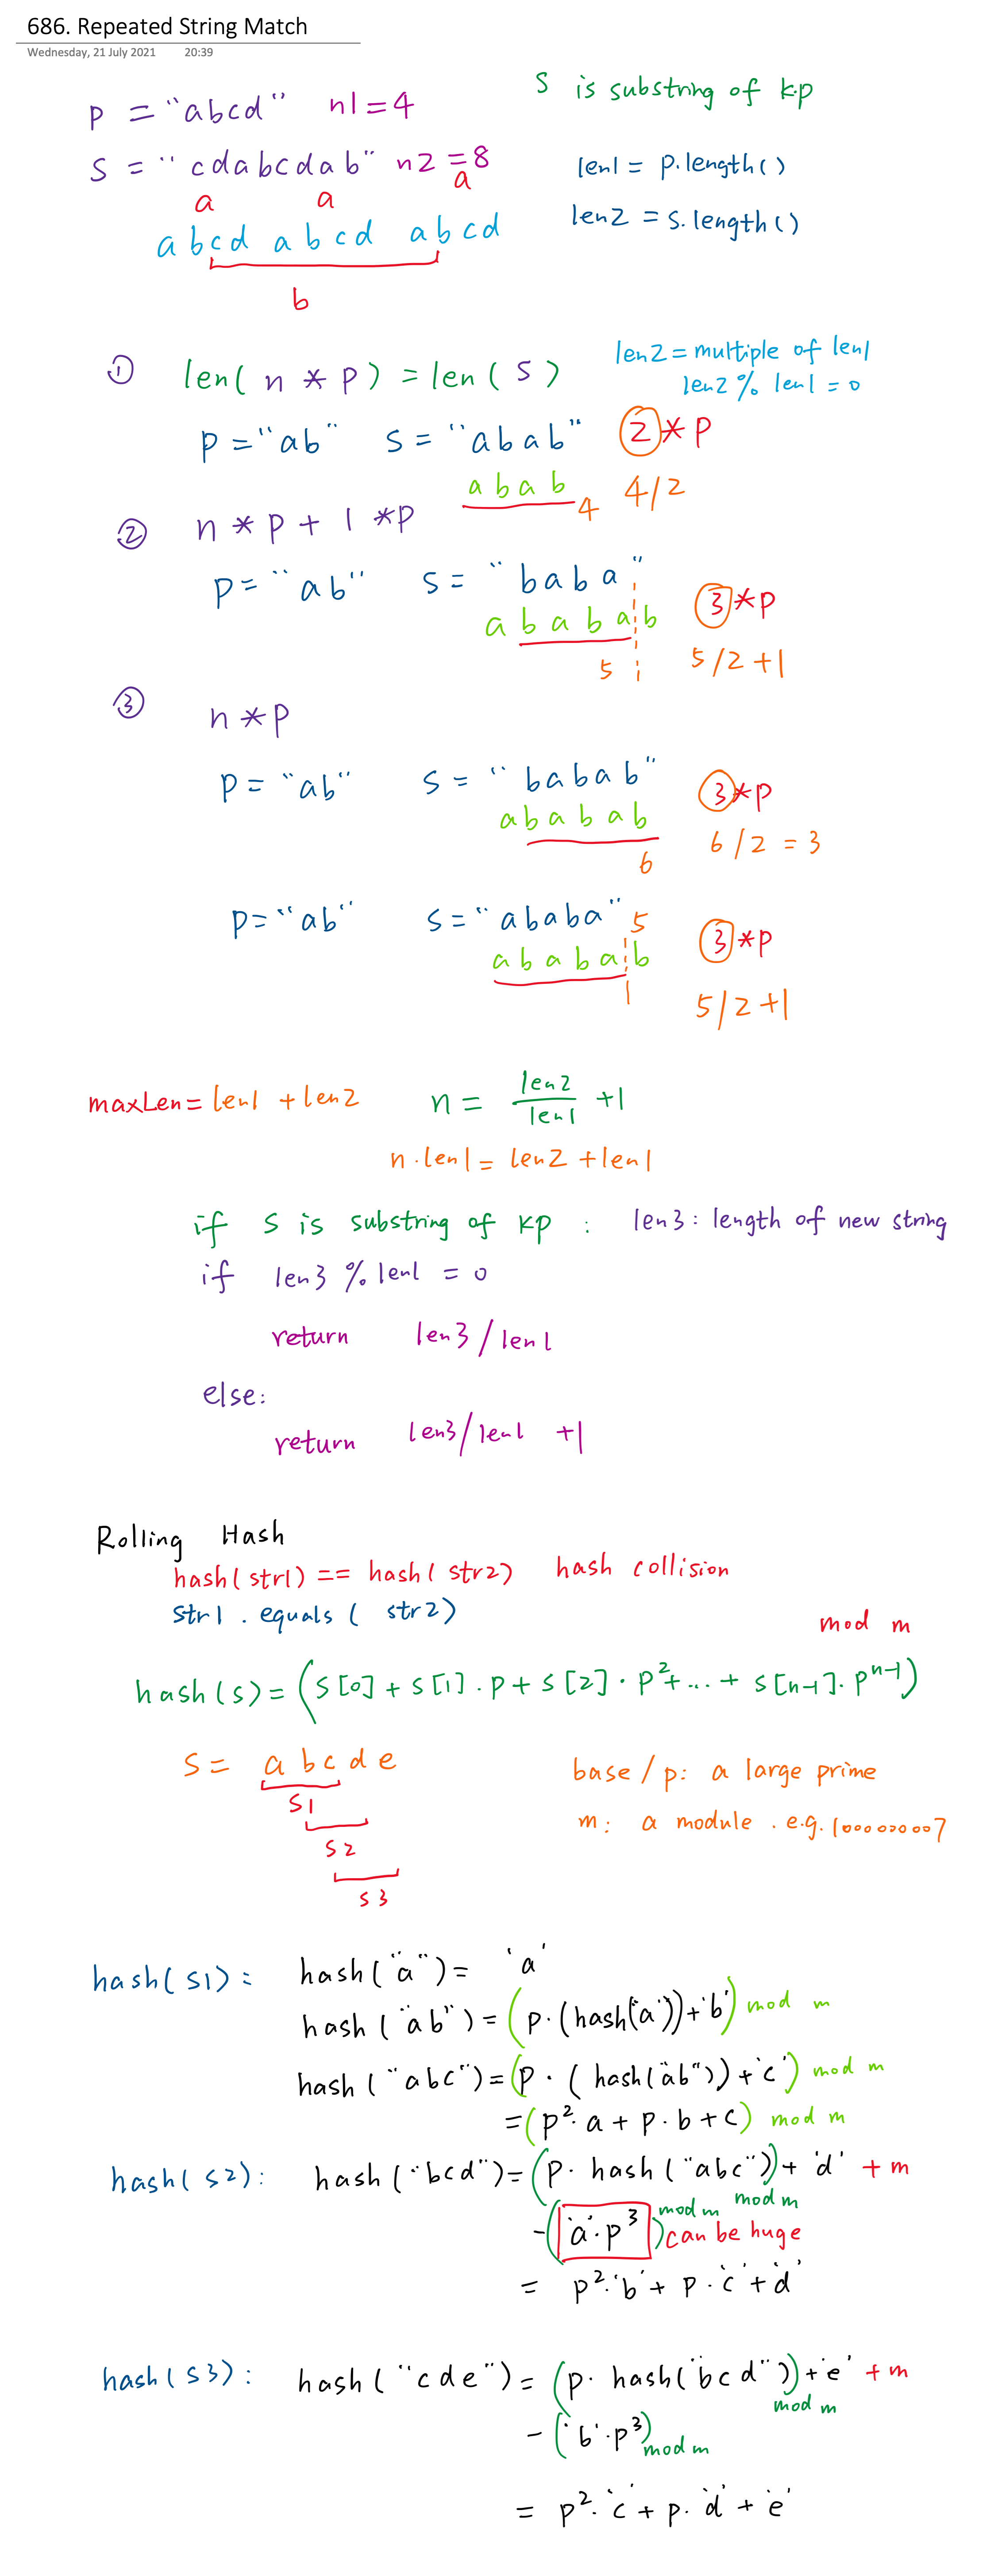 686. Repeated String Match
Wednesday, 21 July 2021 20:39
p = "abcd" n1=4
s is substring of k·p
s = "cdabcdab" n2=8
len1 = p.length()
a a a
len2 = s.length()
abcd abcd abcd
b
① len(n * p) = len(s)
len2 = multiple of len1
len2 % len1 = 0
p = "ab" s = "abab" 2*p
abab 4 4/2
② n*p + 1*p
p = "ab" s = "baba"
ababab 3*p
5 5/2+1
③ n*p
p = "ab" s = "babab" 3*p
ababab 6/2 = 3
6
p = "ab" s = "ababa" 5 3*p
ababab
5/2+1
maxLen = len1 + len2 n = len2/len1 +1
n·len1 = len2 + len1
if s is substring of kp : len3: length of new string
if len3 % len1 = 0
return len3/len1
else:
return len3/len1 +1
Rolling Hash
hash(str1) == hash(str2) hash collision
str1.equals(str2)
mod m
hash(s) = (s[0] + s[1]·p + s[2]·p² + ... + s[n-1]·pⁿ⁻¹)
s = abcde
base/p: a large prime
s1
m: a module. e.g. 1000000007
s2
s3
hash(s1): hash("a") = 'a'
hash("ab") = (p·(hash('a'))+'b') mod m
hash("abc") = (p·(hash("ab"))+'c') mod m
= (p²·a + p·b + c) mod m
hash(s2): hash("bcd") = (p·hash("abc")) + 'd' + m
mod m mod m
-('a'·p³) can be huge
= p²·'b' + p·'c' + 'd'
hash(s3): hash("cde") = (p·hash("bcd")) + 'e' + m
mod m
-('b'·p³) mod m
= p²·'c' + p·'d' + 'e'